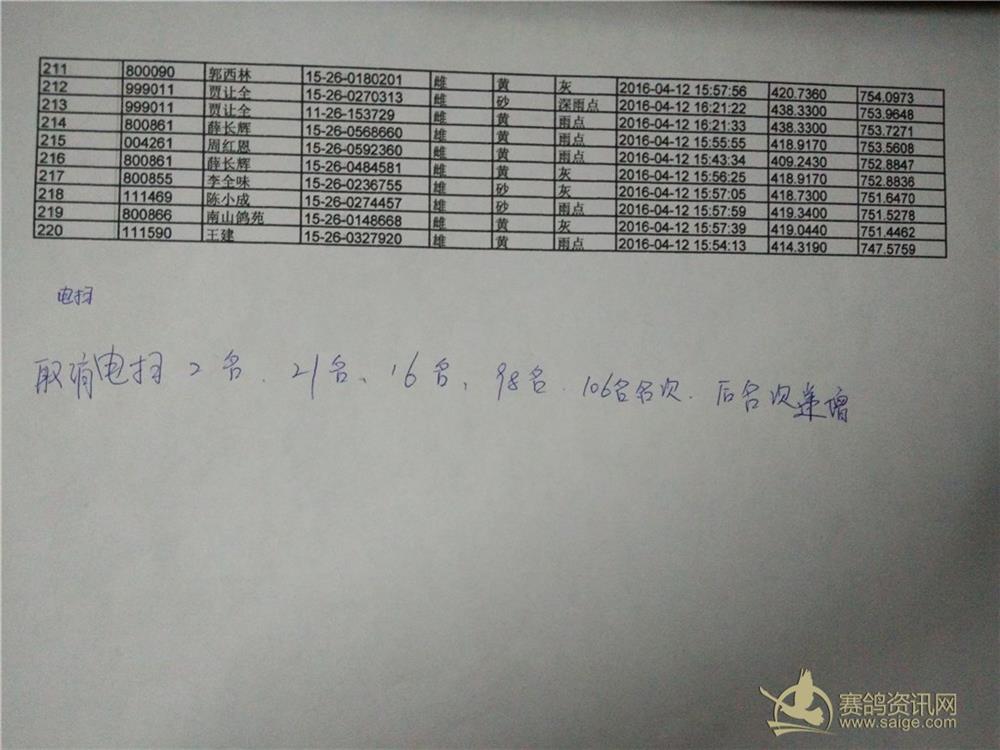 211 800090 郭西林 15-26-0180201 雌 黄 灰 2016-04-12 15:57:56 420.7360 754.0973
212 999011 贾让全 15-26-0270313 雌 砂 深雨点 2016-04-12 16:21:22 438.3300 753.9648
213 999011 贾让全 11-26-153729 雌 黄 雨点 2016-04-12 16:21:33 438.3300 753.7271
214 800861 薛长辉 15-26-0568660 雄 黄 雨点 2016-04-12 15:55:55 418.9170 753.5608
215 004261 周红恩 15-26-0592360 雌 黄 雨点 2016-04-12 15:43:34 409.2430 752.8847
216 800861 薛长辉 15-26-0484581 雌 黄 灰 2016-04-12 15:56:25 418.9170 752.8836
217 800855 李全味 15-26-0236755 雄 砂 灰 2016-04-12 15:57:05 418.7300 751.6470
218 111469 陈小成 15-26-0274457 雄 砂 雨点 2016-04-12 15:57:59 419.3400 751.5278
219 800866 南山鸽苑 15-26-0148668 雌 黄 灰 2016-04-12 15:57:39 419.0440 751.4462
220 111590 王建 15-26-0327920 雄 黄 雨点 2016-04-12 15:54:13 414.3190 747.5759
电扫
取消电扫 2名、21名、16名、98名、106名名次、后名次递增
赛鸽资讯网
www.saige.com